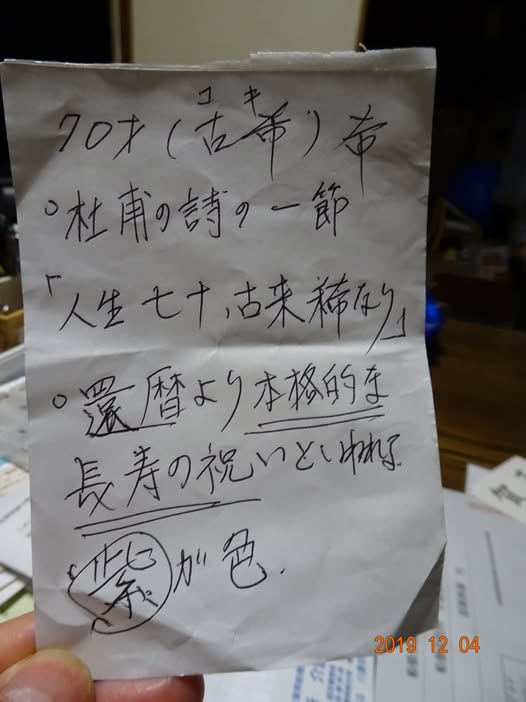 コキ
70才(古希)希
○杜甫の詩の一節
「人生七十、古来稀なり」
○還暦より本格的な
長寿の祝いといわれる。
紫が色.
2019 12 04